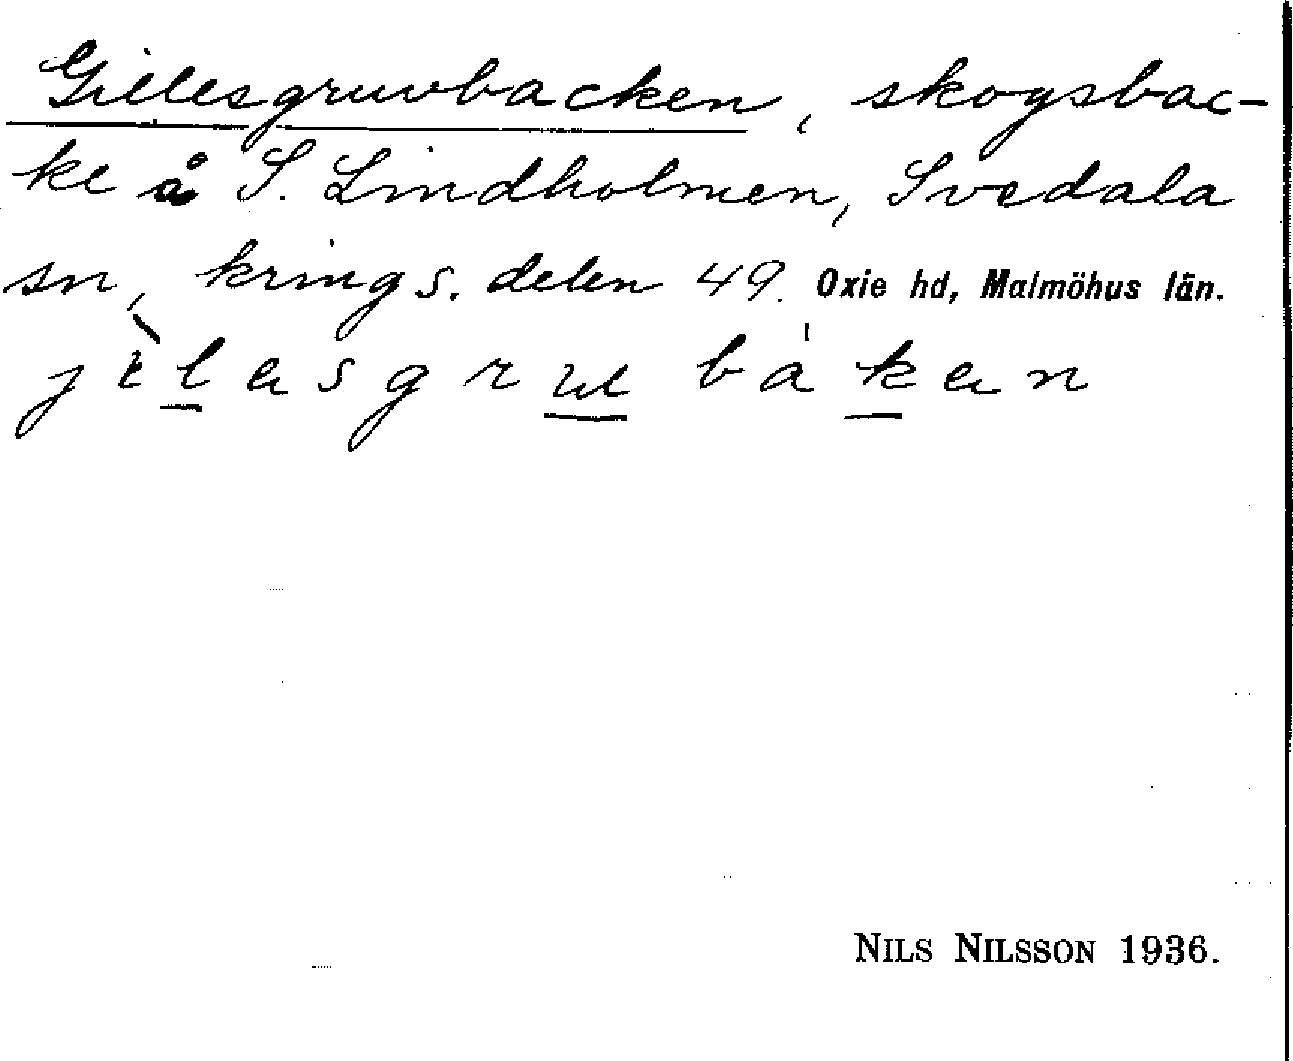 Gillesgruvbacken, skogsbac-
ke å S. Lindholmen, Svedala
sn, kring s. delen 49. Oxie hd, Malmöhus län.
jìlasgru bákan
NILS NILSSON 1936.